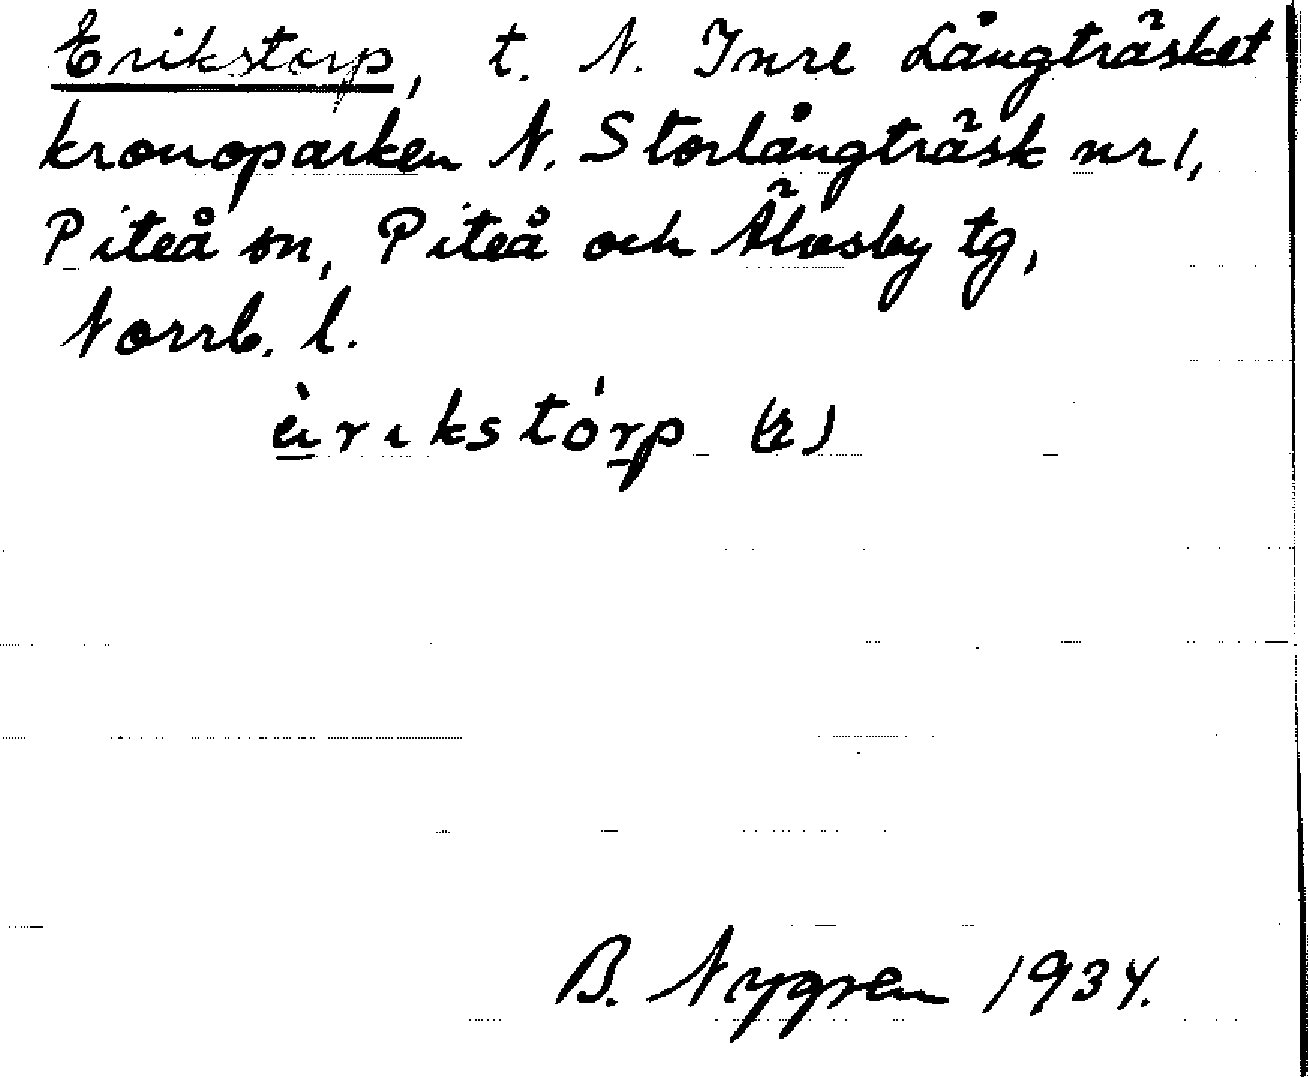 Erikstorp, t. N. Inre Långträsket
kronoparken N. Storlångträsk nr 1,
Piteå sn, Piteå och Älvsby tg,
Norrb. l.
èrikstórp (2)
B. Nygren 1934.